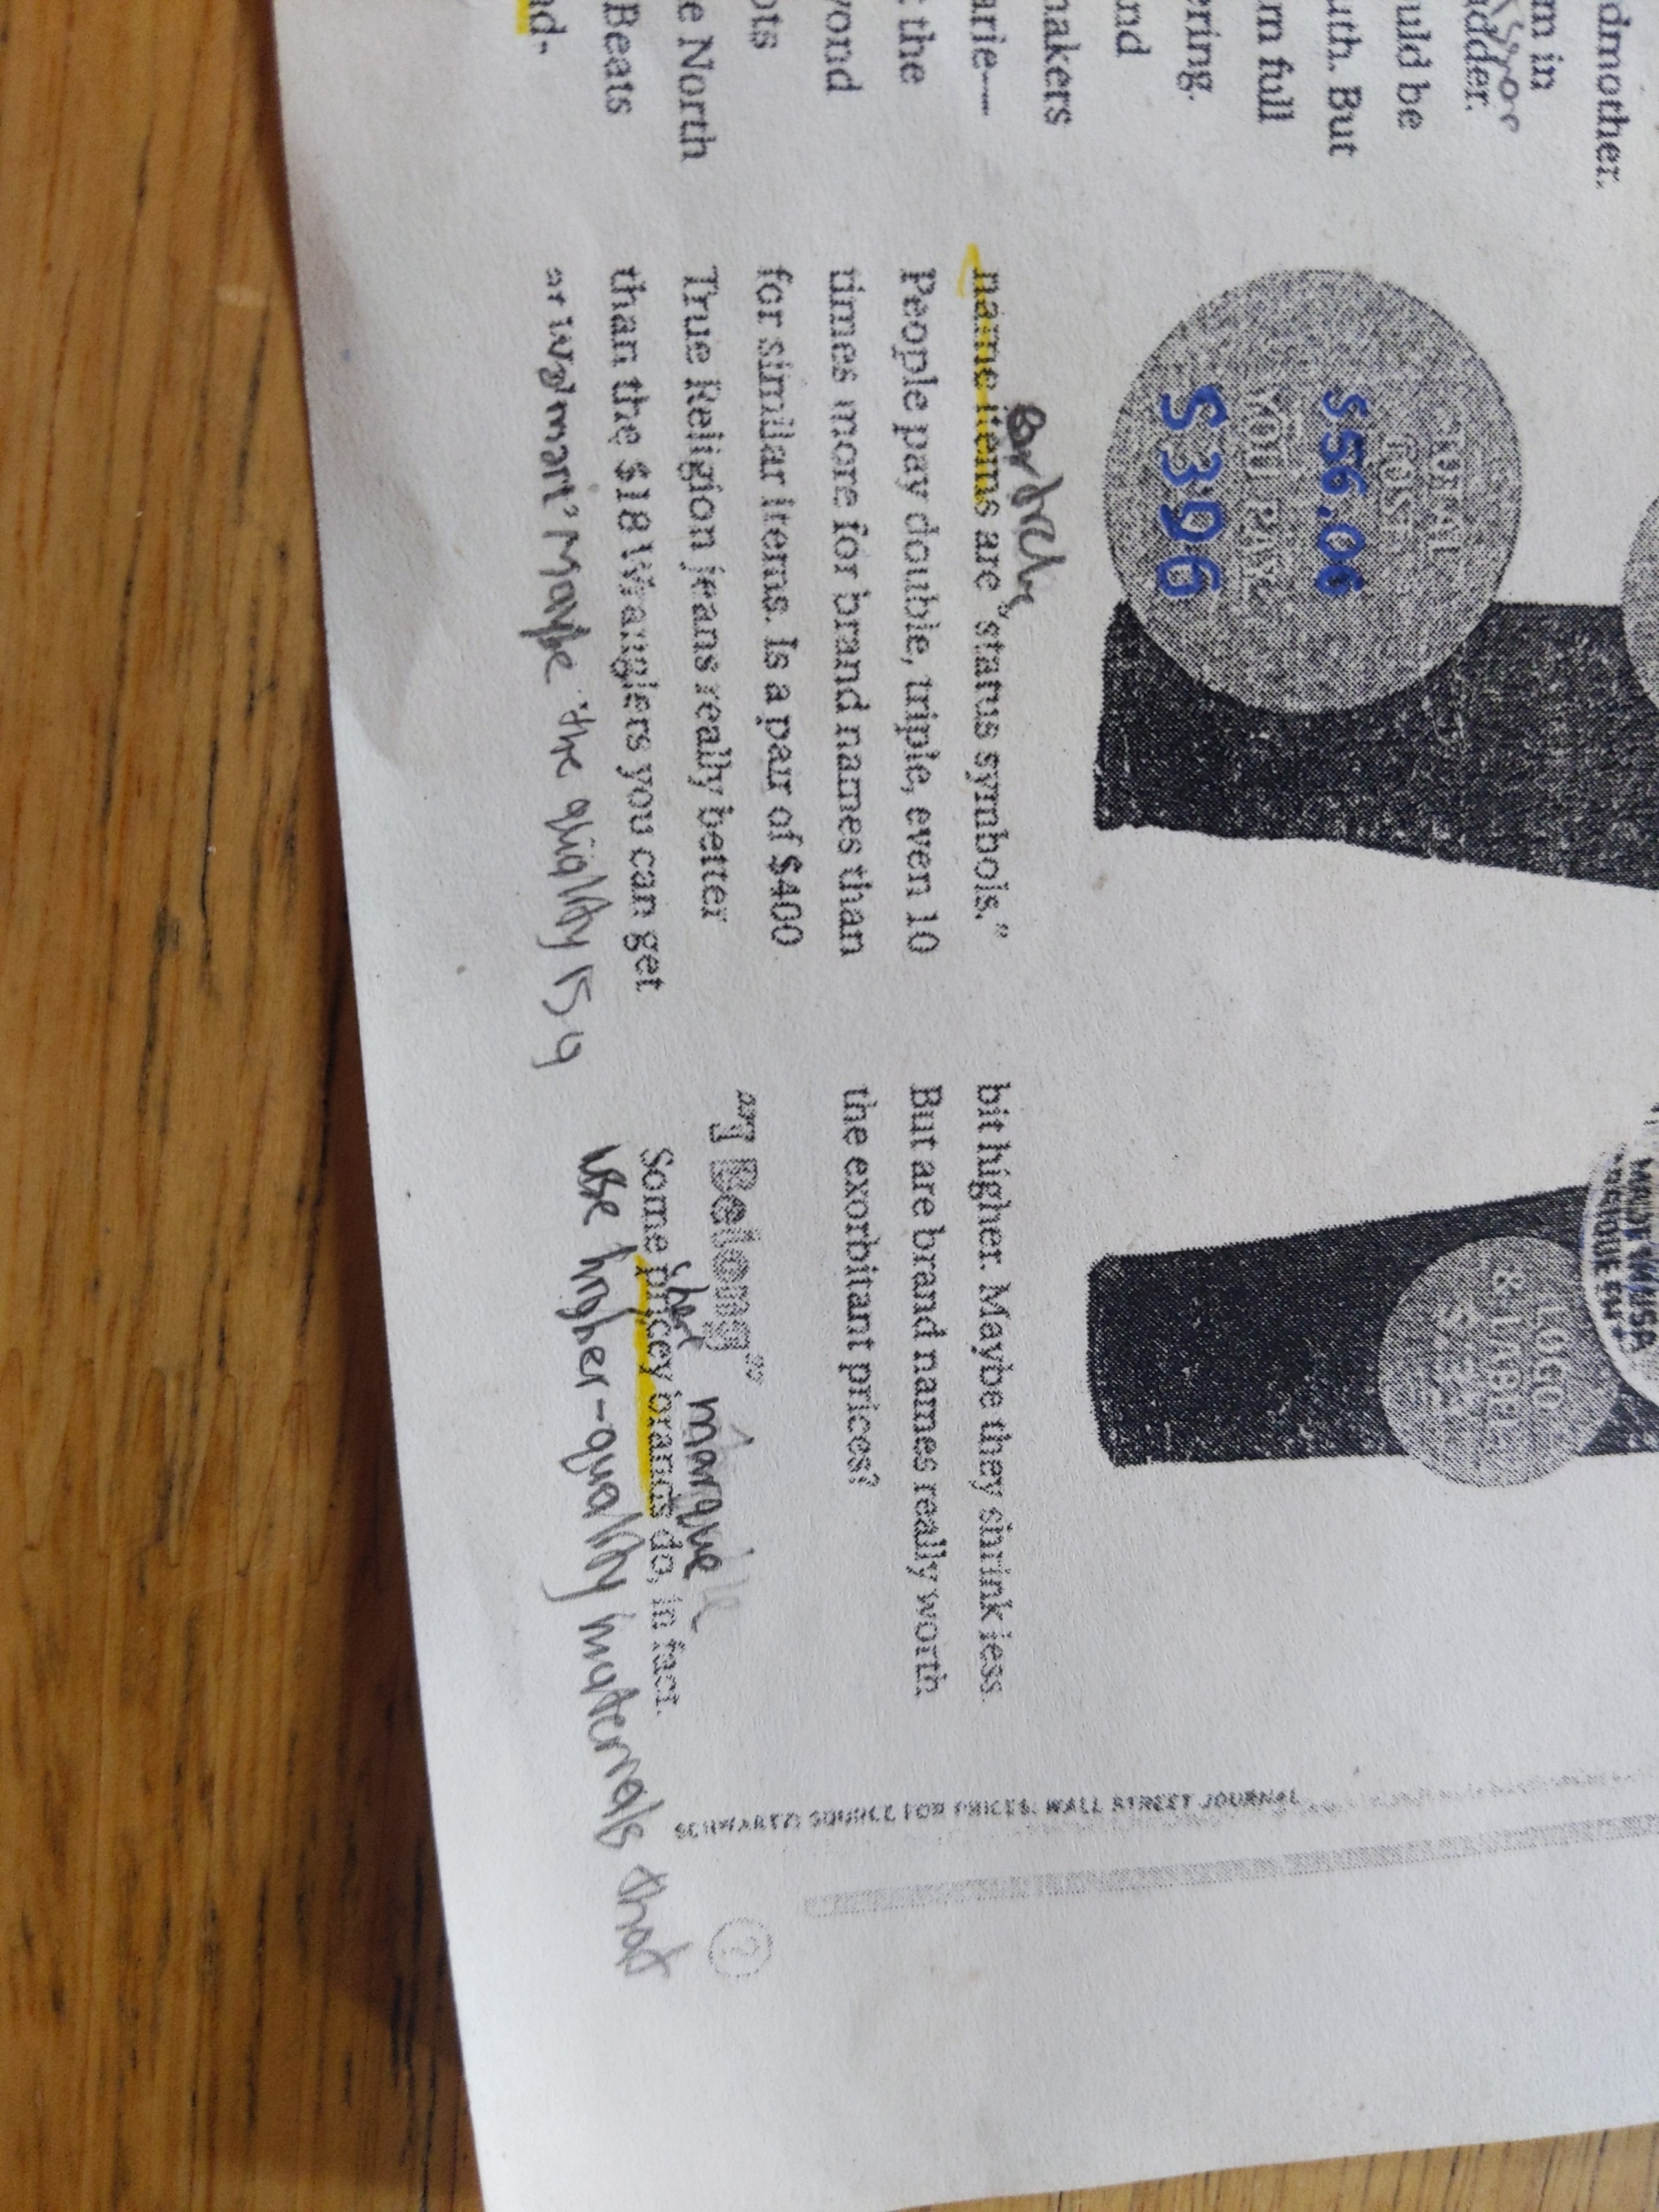 dmother.
m in
adder.
uld be
uth. But
rn full
ering.
nd
makers
arie—
t the
yond
ots
e North
Beats
nd-
TOTAL
COST
$56.06
YOU PAY
$396
name items are "status symbols."
People pay double, triple, even 10
times more for brand names than
for similar items. Is a pair of $400
True Religion jeans really better
than the $18 Wranglers you can get
at Walmart? Maybe the quality is a
LOGO
& LABEL
bit higher. Maybe they shrink less.
But are brand names really worth
the exorbitant prices?
"I Belong"
cher marque
Some pricey brands do, in fact,
use higher-quality materials that
SCHWARTZ; SOURCE FOR PRICES: WALL STREET JOURNAL